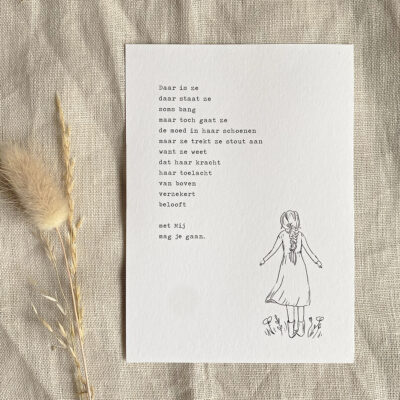 Daar is ze
daar staat ze
soms bang
maar toch gaat ze
de moed in haar schoenen
maar ze trekt ze stout aan
want ze weet
dat haar kracht
haar toelacht
van boven
verzekert
belooft
met Mij
mag je gaan.